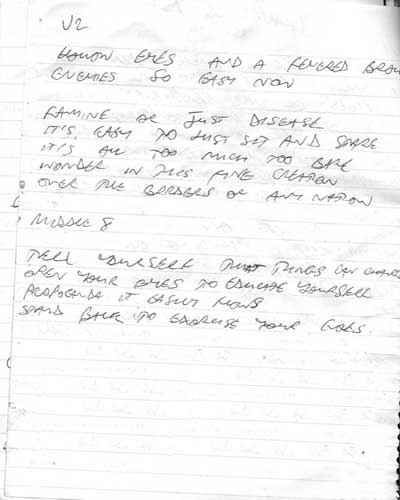 V2
HOLLOW EYES AND A FEVERED BROW
ENEMIES SO EASY NOW
FAMINE OR JUST DISEASE
IT'S EASY TO JUST SIT AND STARE
IT'S ALL TOO MUCH TOO BARE
WONDER IN THIS FINE CREATION
OVER THE BORDERS OF ANY NATION
MIDDLE 8
TELL YOURSELF THAT THINGS CAN CHANGE
OPEN YOUR EYES TO EDUCATE YOURSELF
PROPOGANDA IT EASILY FLOWS
STAND BACK TO EXORCISE YOUR